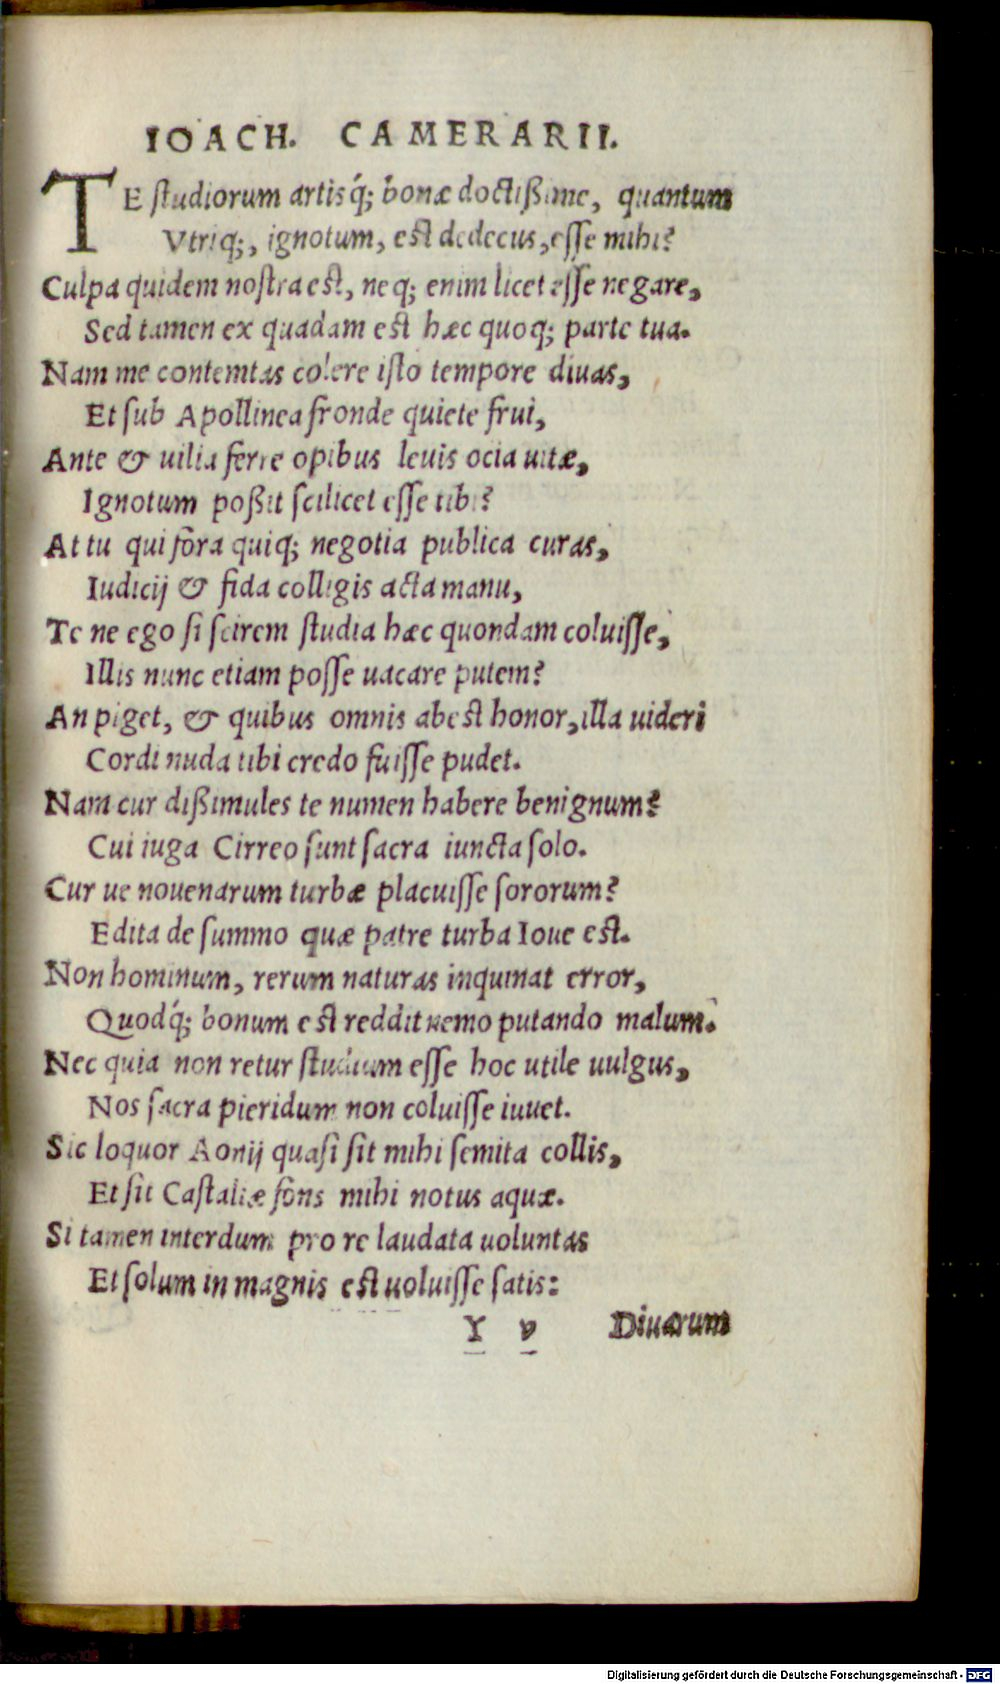 IOACH. CAMERARII.
TE studiorum artisq́; bonæ doctißime, quantum
Vtriq;, ignotum, est dedecus, esse mihi?
Culpa quidem nostra est, neq; enim licet esse negare,
Sed tamen ex quadam est hæc quoq; parte tua.
Nam me contemtas colere isto tempore diuas,
Et sub Apollinea fronde quiete frui,
Ante & uilia ferre opibus leuis ocia uitæ,
Ignotum poßit scilicet esse tibi?
At tu qui fora quiq; negotia publica curas,
Iudicij & fida colligis acta manu,
Te ne ego si scirem studia hæc quondam coluisse,
Illis nunc etiam posse uacare putem?
An piget, & quibus omnis abest honor, illa uideri
Cordi nuda tibi credo fuisse pudet.
Nam cur dißimules te numen habere benignum?
Cui iuga Cirreo sunt sacra iuncta solo.
Cur ue nouenarum turbæ placuisse sororum?
Edita de summo quæ patre turba Ioue est.
Non hominum, rerum naturas inquinat error,
Quodq́; bonum est reddit nemo putando malum.
Nec quia non retur studium esse hoc utile uulgus,
Nos sacra pieridum non coluisse iuuet.
Sic loquor Aonij quasi sit mihi semita collis,
Et sit Castaliæ fons mihi notus aquæ.
Si tamen interdum pro re laudata uoluntas
Et solum in magnis est uoluisse satis:
Y v Diuarum
Digitalisierung gefördert durch die Deutsche Forschungsgemeinschaft - DFG